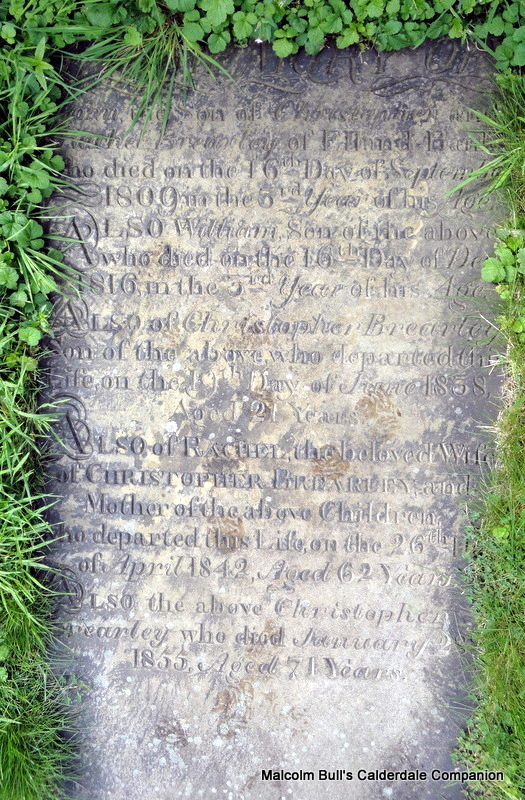 the Son of Christopher and
Rachel Brearley of Elland Bank
who died on the 16th Day of Septem
1809, in the 3rd Year of his Age
ALSO William, Son of the above
who died on the 16th Day of De
1816, in the 3rd Year of his Age
ALSO of Christopher Brearley
Son of the above, who departed this
Life, on the 19th Day of June 1838,
Aged 21 Years
ALSO of RACHEL, the beloved Wife
of CHRISTOPHER BREARLEY, and
Mother of the above Children,
who departed this Life, on the 26th
of April 1842, Aged 62 Years
ALSO the above Christopher
Brearley who died January
1855, Aged 71 Years.
Malcolm Bull's Calderdale Companion